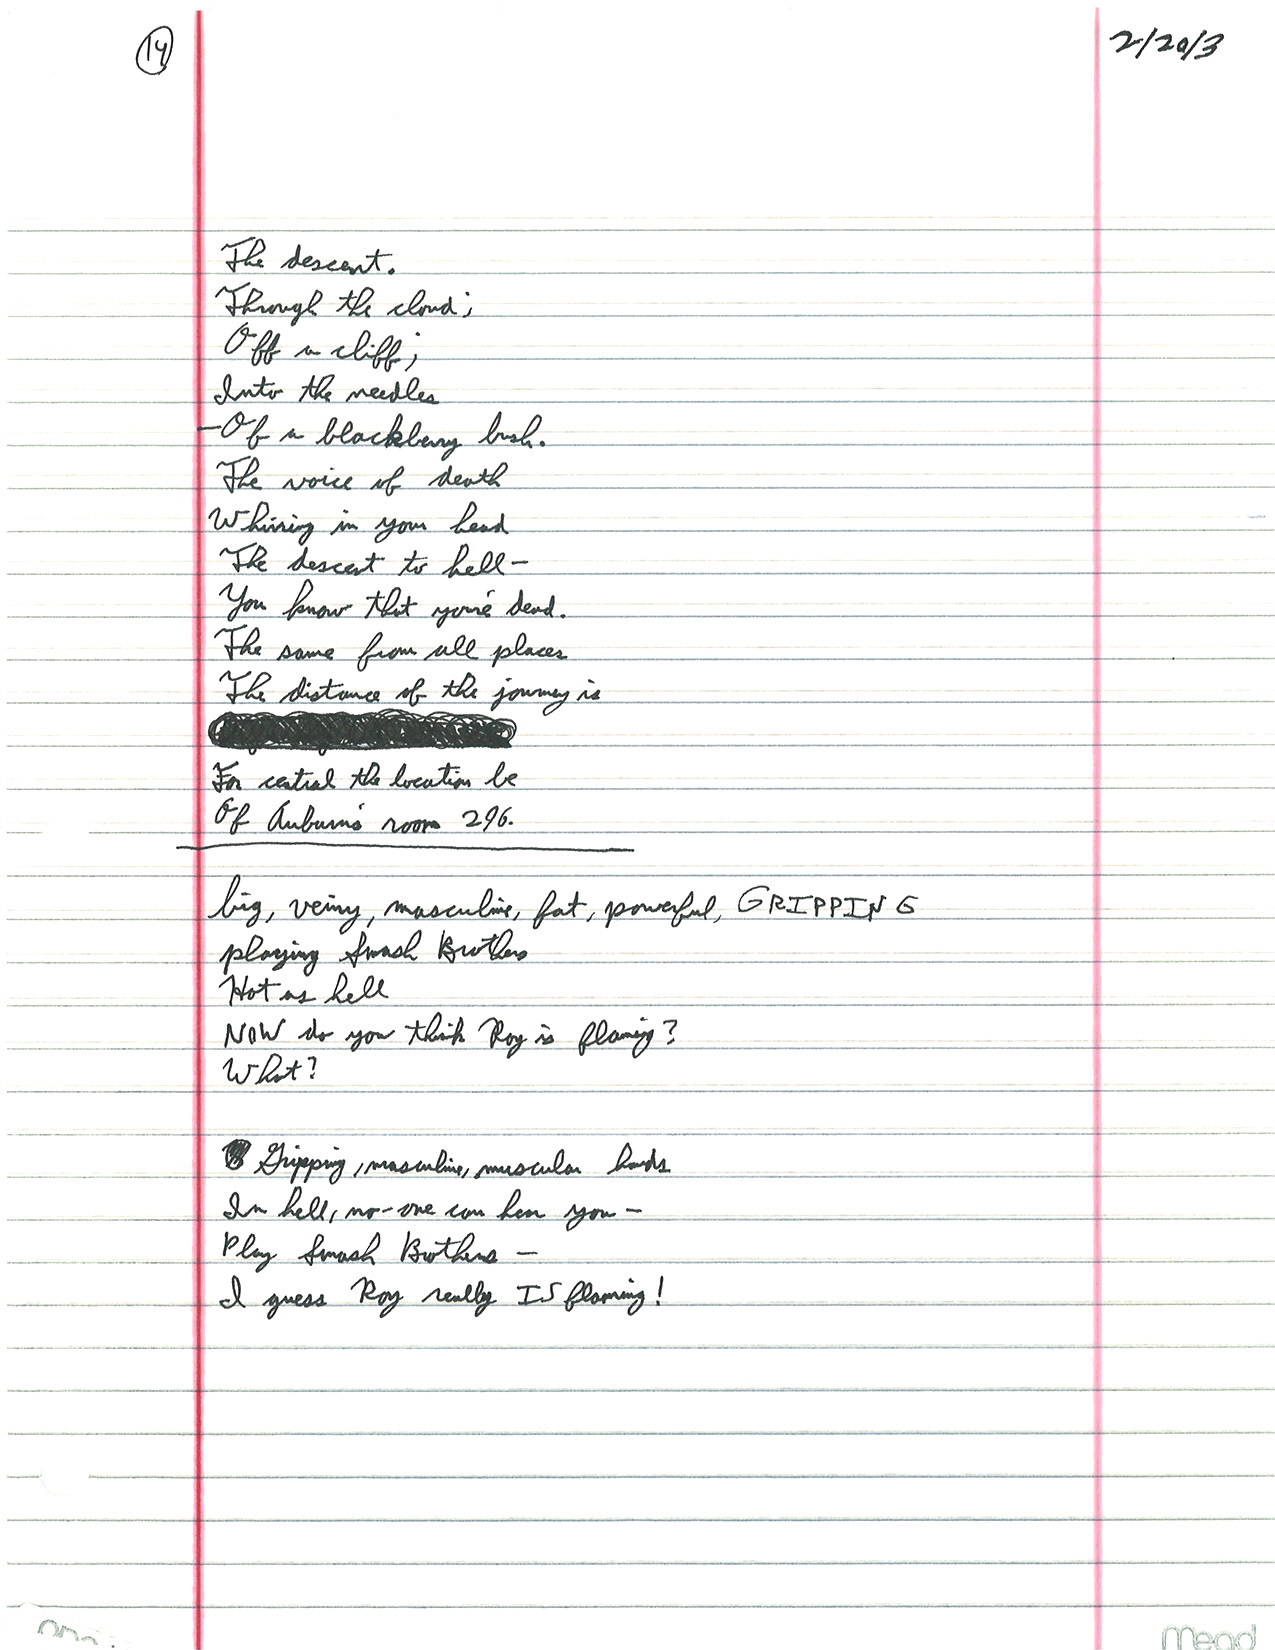 14
2/20/3
The descent.
Through the cloud;
Off a cliff;
Into the needles
-Of a blackberry bush.
The voice of death
Whirring in your head
The descent to hell-
You know that you're dead.
The same from all places
The distance of the journey is
For central the location be
Of Auburn's room 296.
big, veiny, masculine, fat, powerful, GRIPPING
playing Smash Brothers
Hot as hell
NOW do you think Roy is flaming?
What?
Gripping, masculine, muscular hands
In hell, no-one can hear you -
Play Smash Brothers -
I guess Roy really IS flaming!
Mead